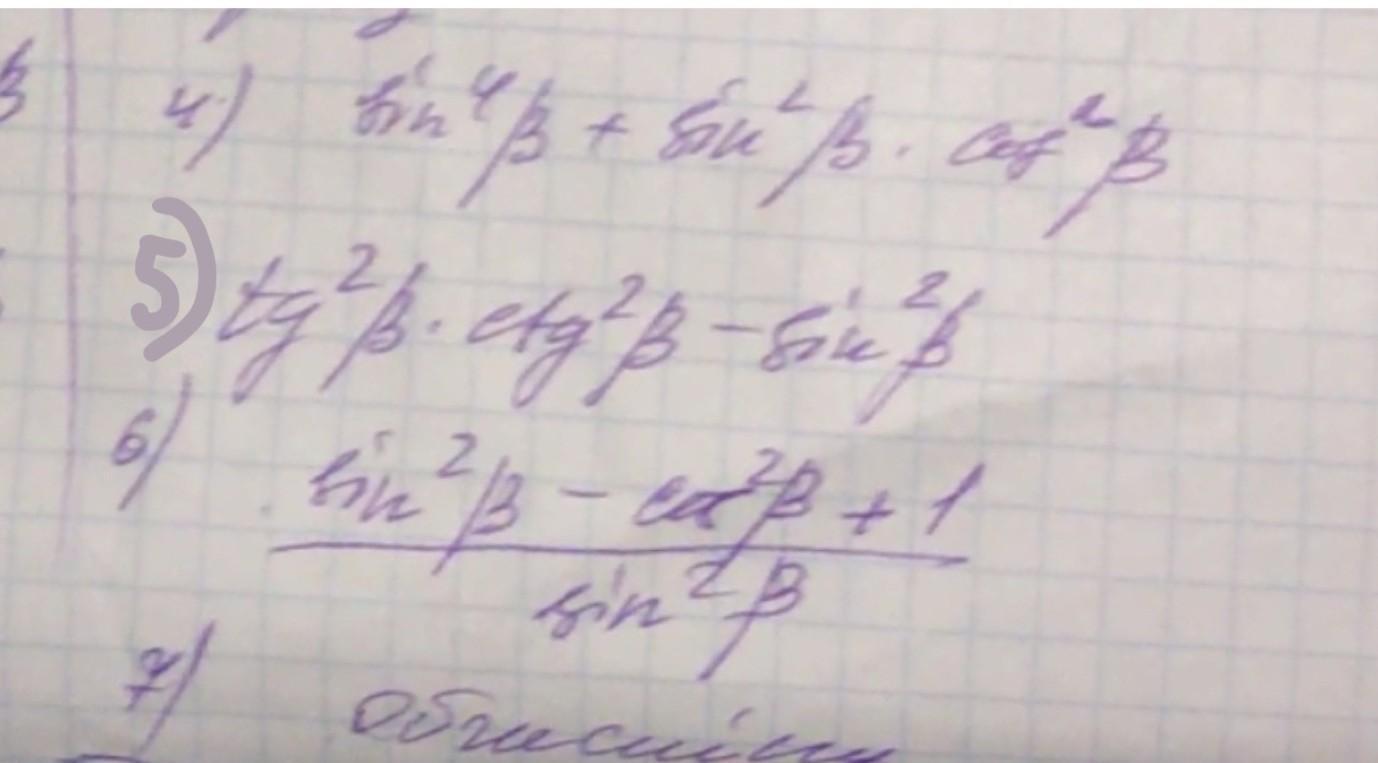 4) sin⁴β + sin²β · cos²β
5) tg²β · ctg²β − sin²β
6) sin²β − cos²β + 1
sin²β
7)